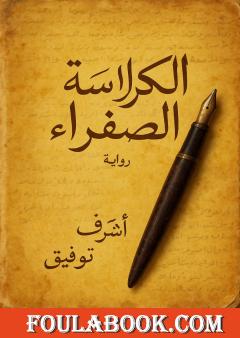 الكراسَة
الصفراء
رواية
أشرف
توفيق
FOULABOOK.COM